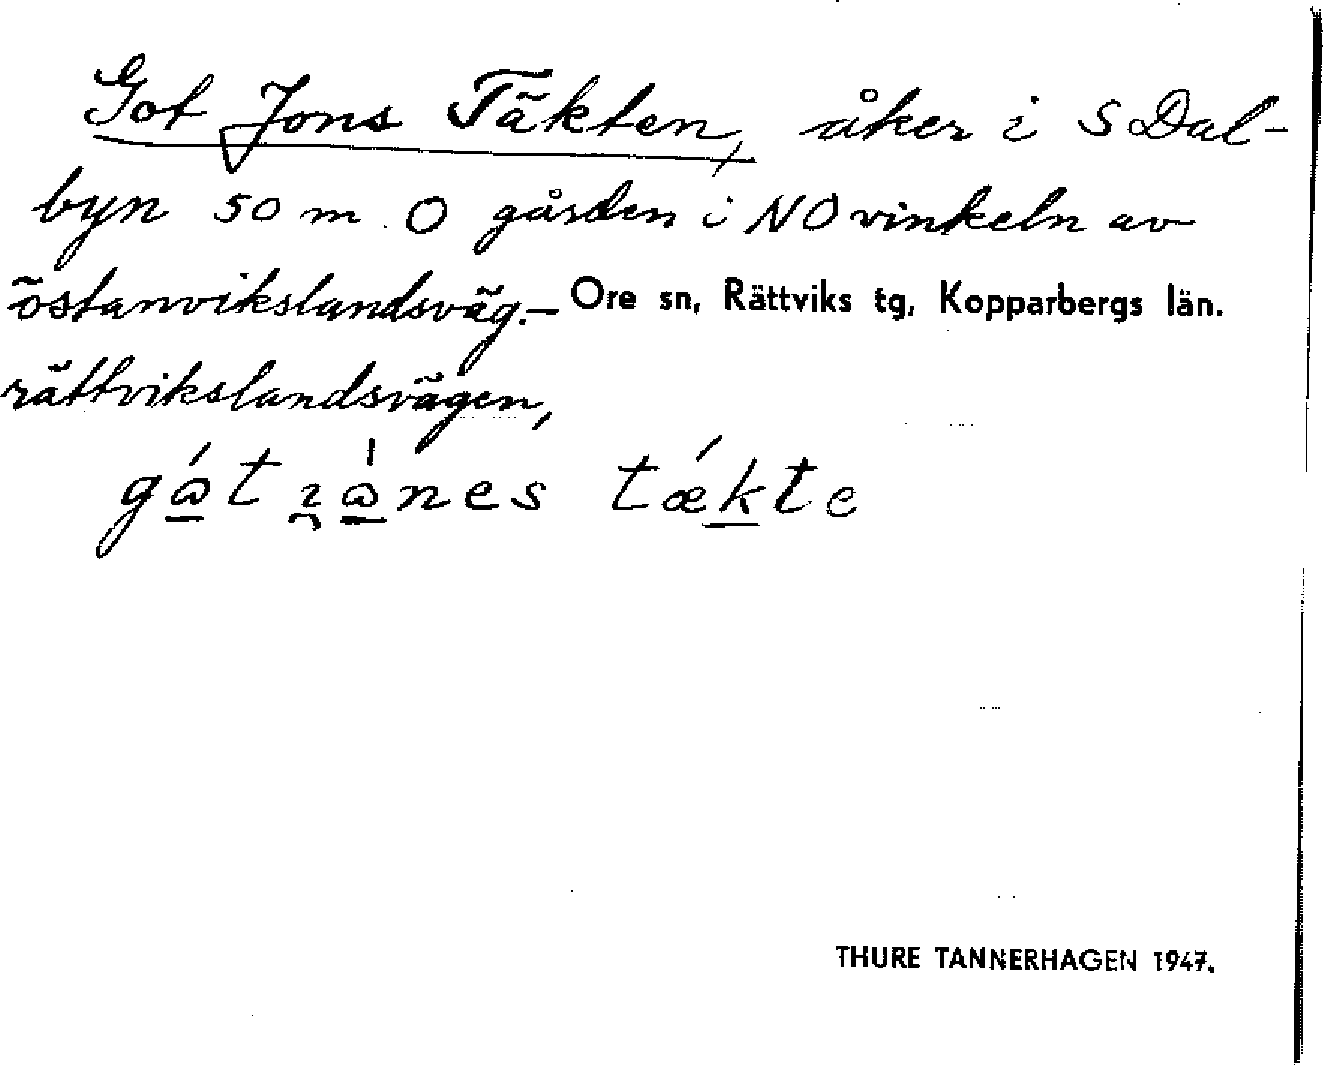 Got Jons Täkten, åker i S Dal-
byn 50 m O gården i NO vinkeln av
östanvikslandsväg.— Ore sn, Rättviks tg, Kopparbergs län.
rättvikslandsvägen,
tækte
THURE TANNERHAGEN 1947.